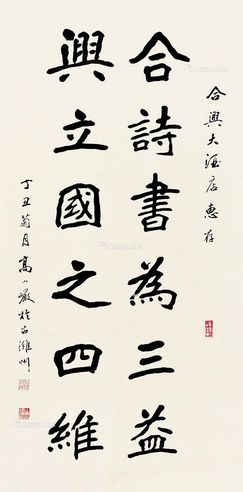 合興大酒店惠存
合詩書為三益
興立國之四維
丁丑菊月高小巖於古濰州